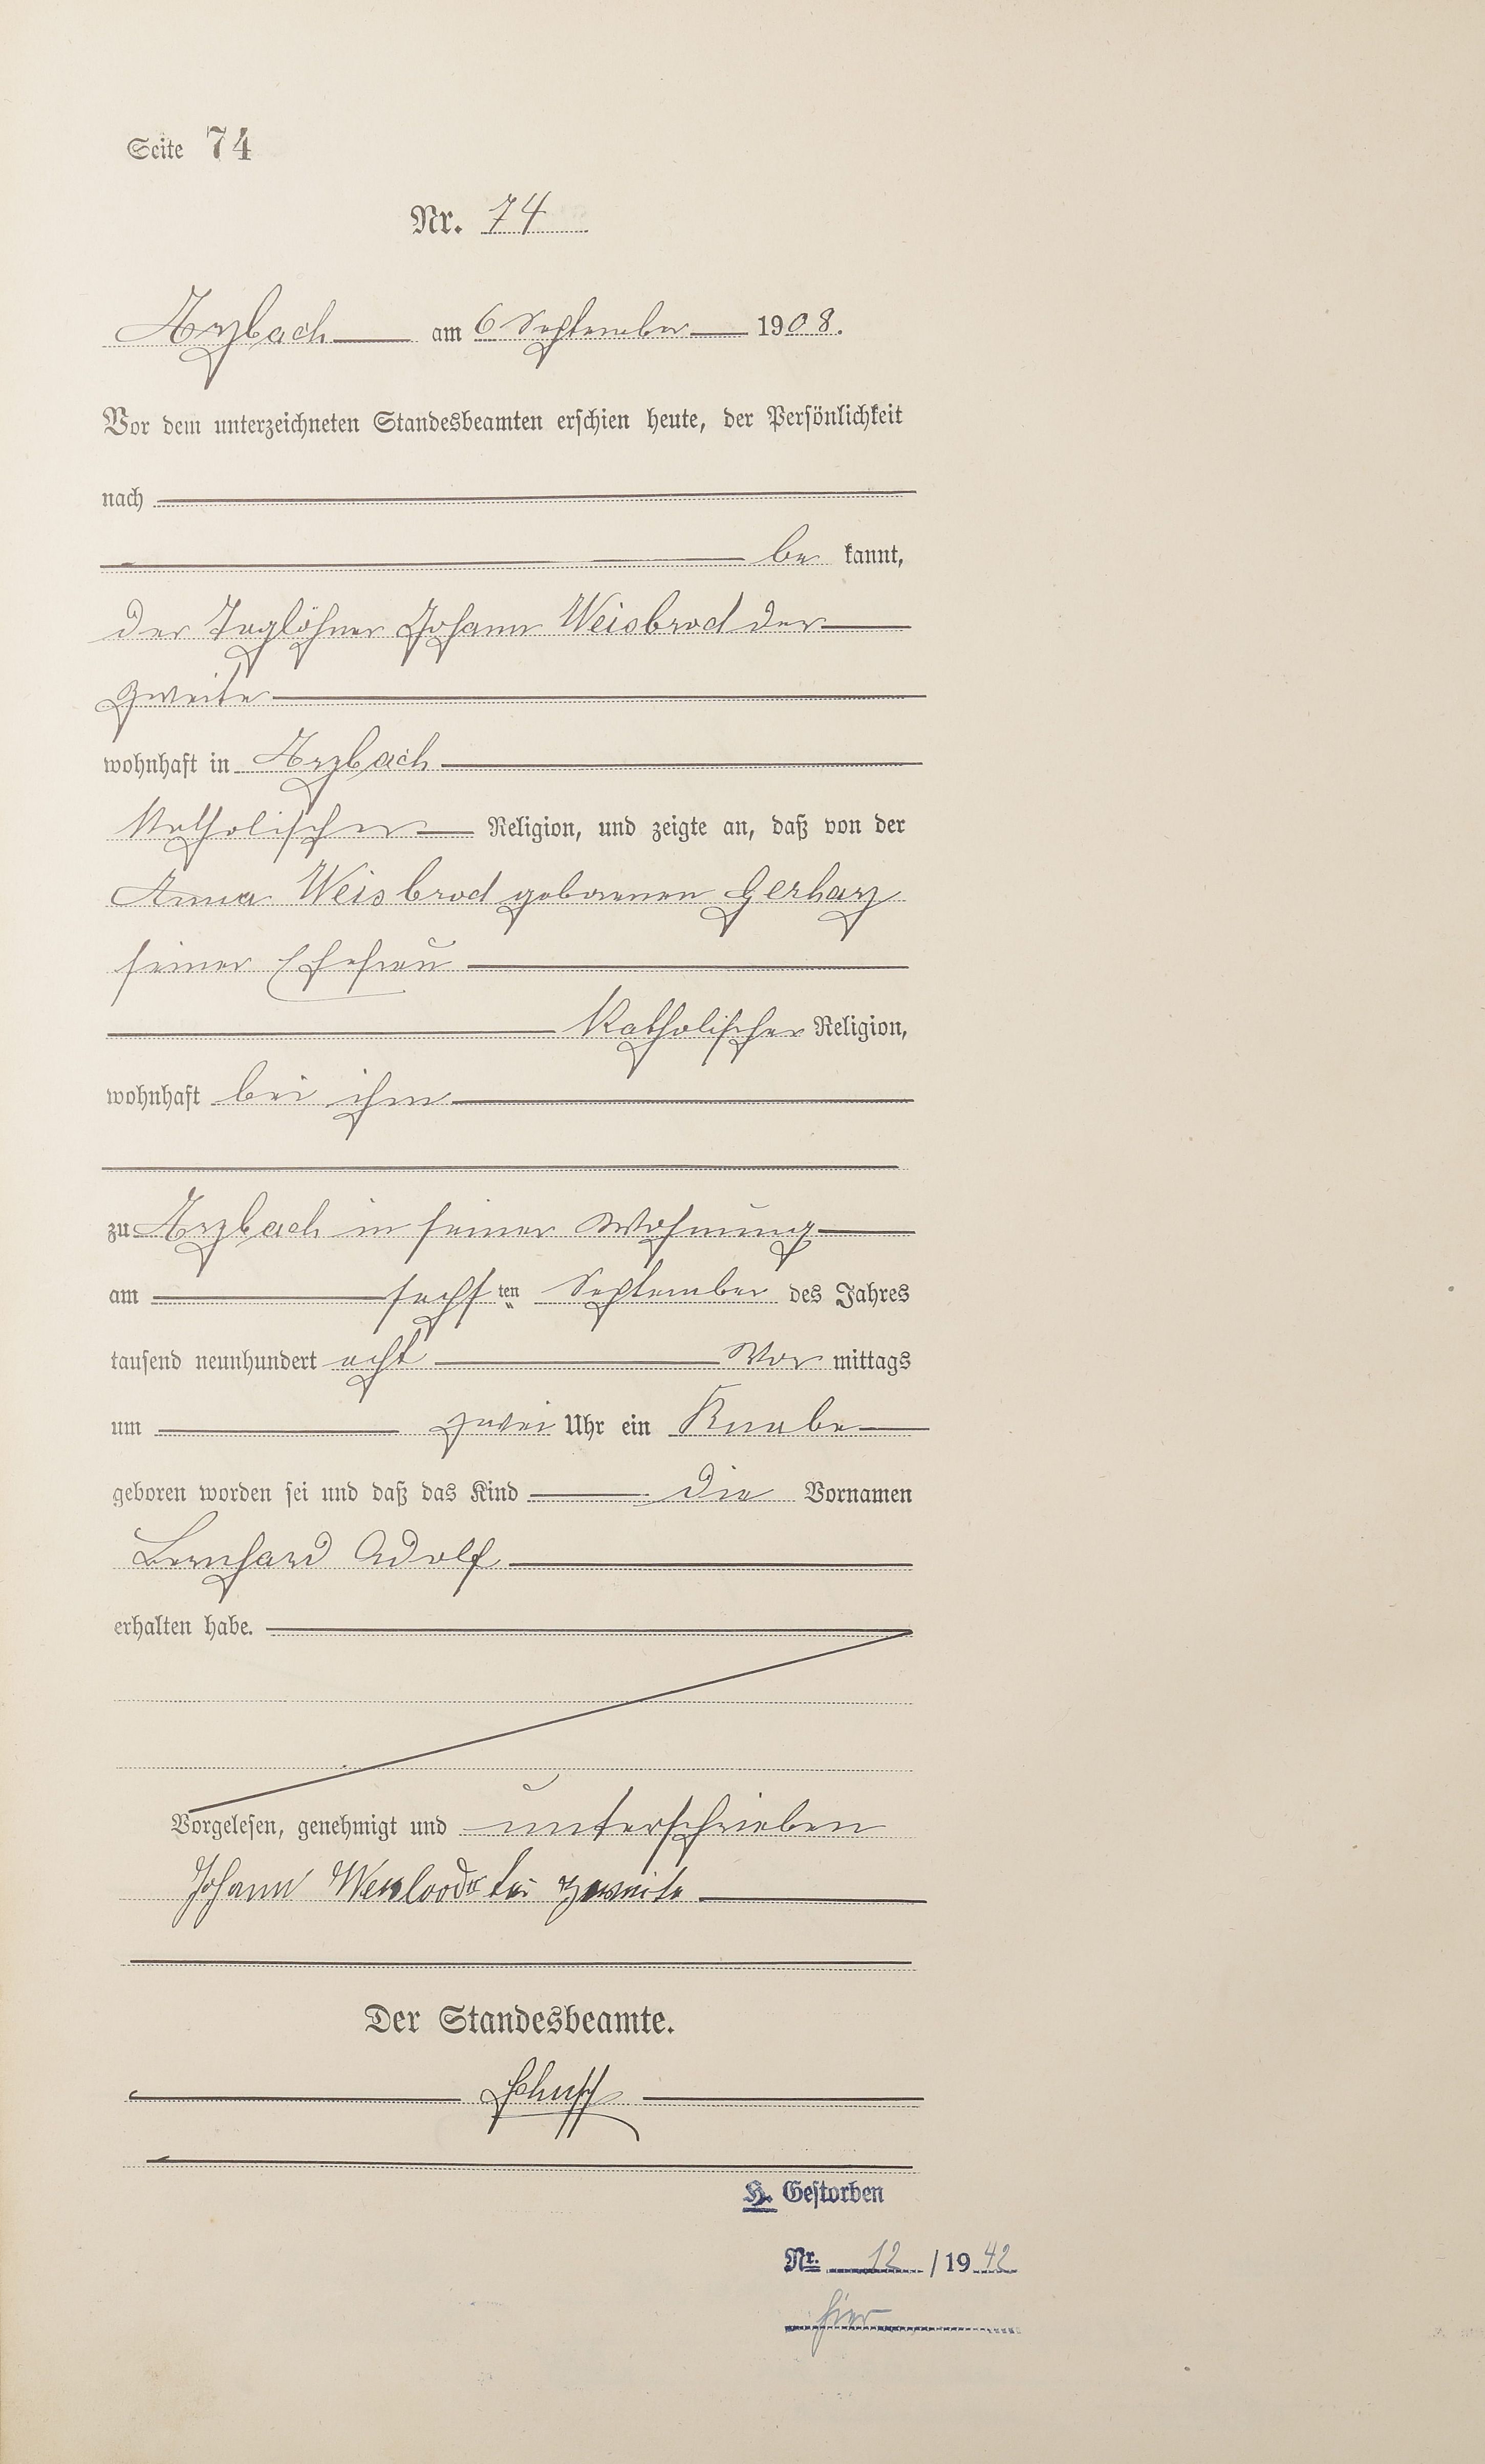 Seite 74
Nr. 74
Arzbach am 6 September 1908.
Vor dem unterzeichneten Standesbeamten erschien heute, der Persönlichkeit
nach
be kannt,
der Taglöhner Johann Weisbrod der
Zweite
wohnhaft in Arzbach
katholischer Religion, und zeigte an, daß von der
Anna Weisbrod geborenen Gerharz
seiner Ehefrau
katholischer Religion,
wohnhaft bei ihm
zu Arzbach in seiner Wohnung
am sechsten September des Jahres
tausend neunhundert acht Vor mittags
um zwei Uhr ein Knabe
geboren worden sei und daß das Kind die Vornamen
Bernhard Adolf
erhalten habe.
Vorgelesen, genehmigt und unterschrieben
Johann Weisbrod der zweite
Der Standesbeamte.
H. Gestorben
Nr. 12 / 1942
hier